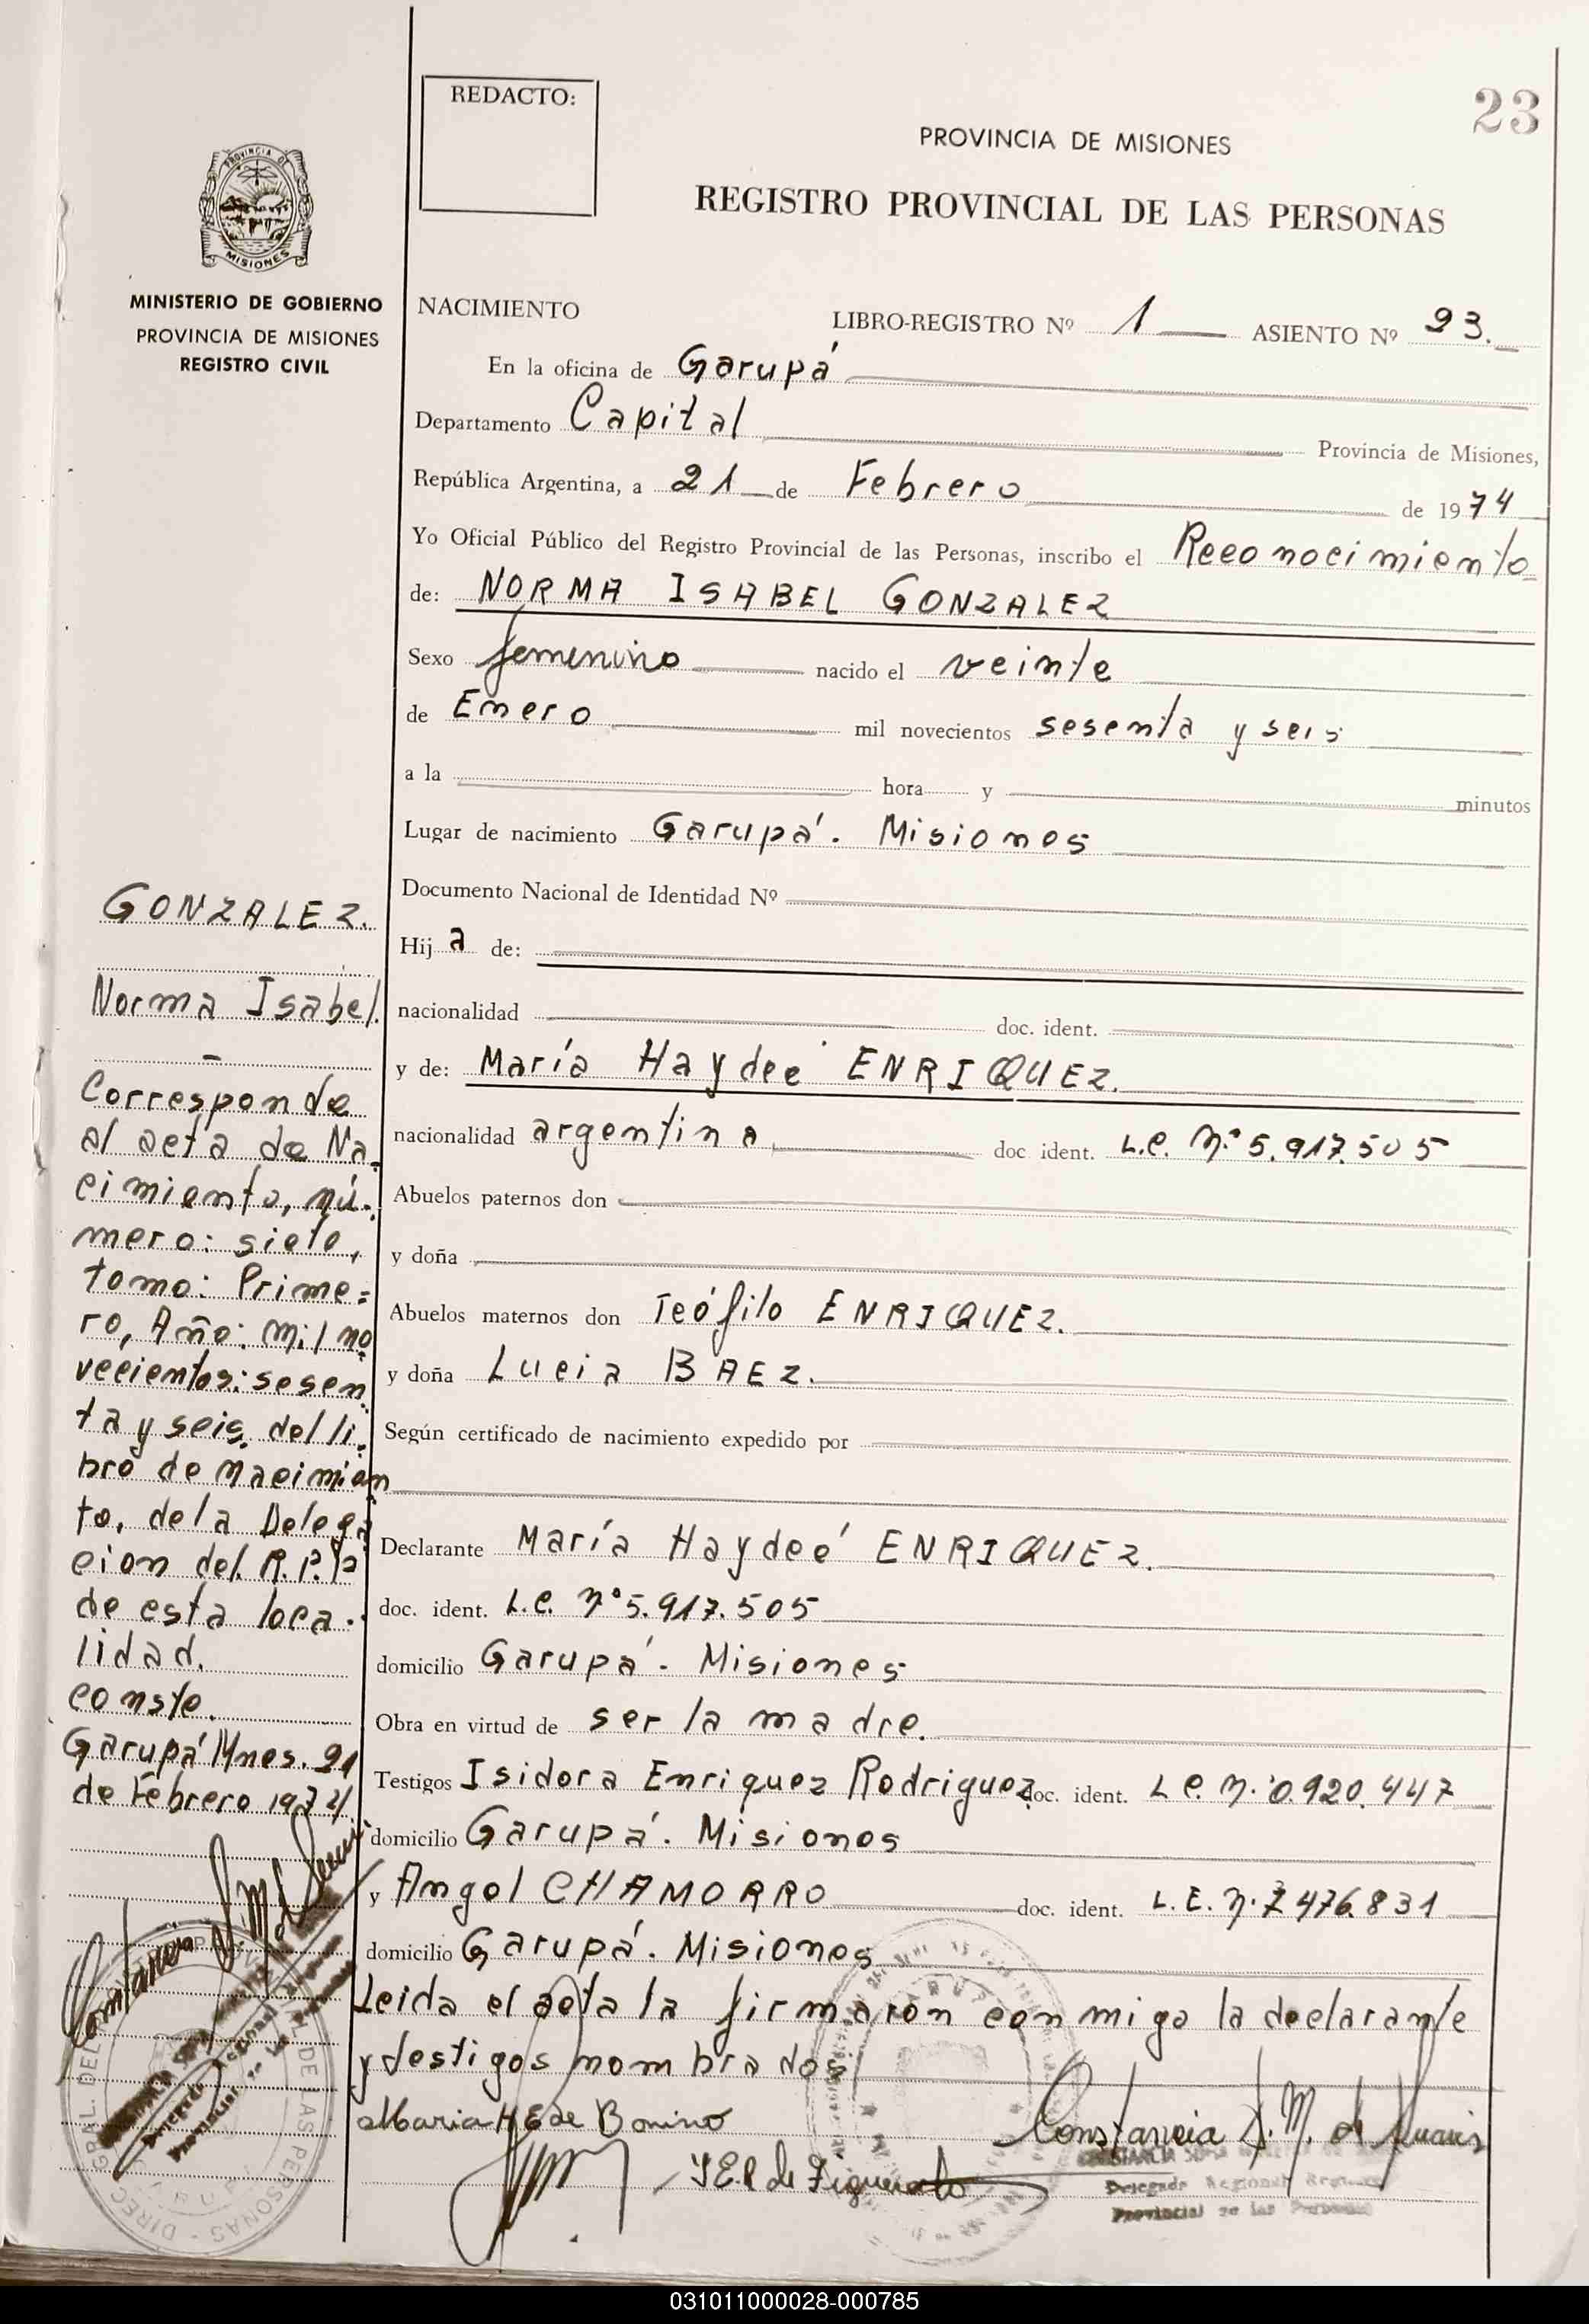 23
REDACTO:
PROVINCIA DE MISIONES
REGISTRO PROVINCIAL DE LAS PERSONAS
PROVINCIA DE
MISIONES
MINISTERIO DE GOBIERNO
PROVINCIA DE MISIONES
REGISTRO CIVIL
NACIMIENTO LIBRO-REGISTRO Nº 1 ASIENTO Nº 93.
En la oficina de Garupá
Departamento Capital Provincia de Misiones,
República Argentina, a 21 de Febrero de 1974
Yo Oficial Público del Registro Provincial de las Personas, inscribo el Reconocimiento
de: NORMA ISABEL GONZALEZ
Sexo femenino nacido el veinte
de Enero mil novecientos sesenta y seis
a la hora y minutos
Lugar de nacimiento Garupá. Misiones
Documento Nacional de Identidad Nº
Hij a de:
nacionalidad doc. ident.
y de: María Haydeé ENRIQUEZ.
nacionalidad argentina doc ident. L.C. Nº 5.917.505
Abuelos paternos don
y doña
Abuelos maternos don Teófilo ENRIQUEZ.
y doña Lucia BAEZ.
Según certificado de nacimiento expedido por
Declarante María Haydeé ENRIQUEZ.
doc. ident. L.C. Nº 5.917.505
domicilio Garupá. Misiones
Obra en virtud de ser la madre.
Testigos Isidora Enriquez Rodriguez doc. ident. L C. N. 0.920.447
domicilio Garupá. Misiones
y Angel CHAMORRO doc. ident. L.E. N. 7 476.831
domicilio Garupá. Misiones
Leida el acta la firmaron conmigo la declarante
y testigos nombrados
Maria H E de Bonino
Constancia S. M. de
Y E R de Figueredo
Delegada Regional Registro
Provincial de las Personas
GONZALEZ.
Norma Isabel.
Corresponde
al acta de Na-
cimiento, nú-
mero: siete,
tomo: Prime=
ro, Año: mil no
vecientos: sesen
ta y seis, del li-
bro de nacimien
to, de la Delega
cion del R.P.P
de esta loca-
lidad.
conste.
Garupá Mnes. 21
de Febrero 1974
Constancia S. M. de
Delegada Regional
Provincial de las Personas
031011000028-000785